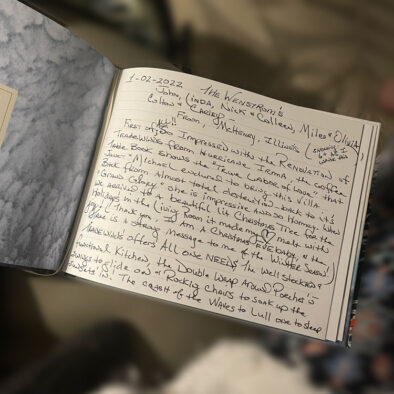 1-02-2022 THE WENSTROM'S
John, LINDA, Nick & Colleen, Miles & Olivia,
Colton &
From, McHenry, ILLINOIS
First of All!! So Impressed with the Renovation of
TRADEWINDS from Hurricane Irma, the coffee
Table Book shows the "True Labor of Love" that
Michael endured to bring this Villa
Back from Almost total destruction back to its
"Grand Galaxy" she is impressive AND so Homey. When
we arrived to A beautiful lit Christmas Tree for the
Holidays in the Living Room it made my melt with
Joy! Thank you - I Am A Christmas & the
is a strong message to me of the Winter Season!
TRADEWINDS offers ALL one NEEDS The well stocked &
functional Kitchen, the Double Wrap Around Porches w/
to glide on & Rocking Chairs to soak up the
Sunsets in! The of the Waves to Lull one to sleep